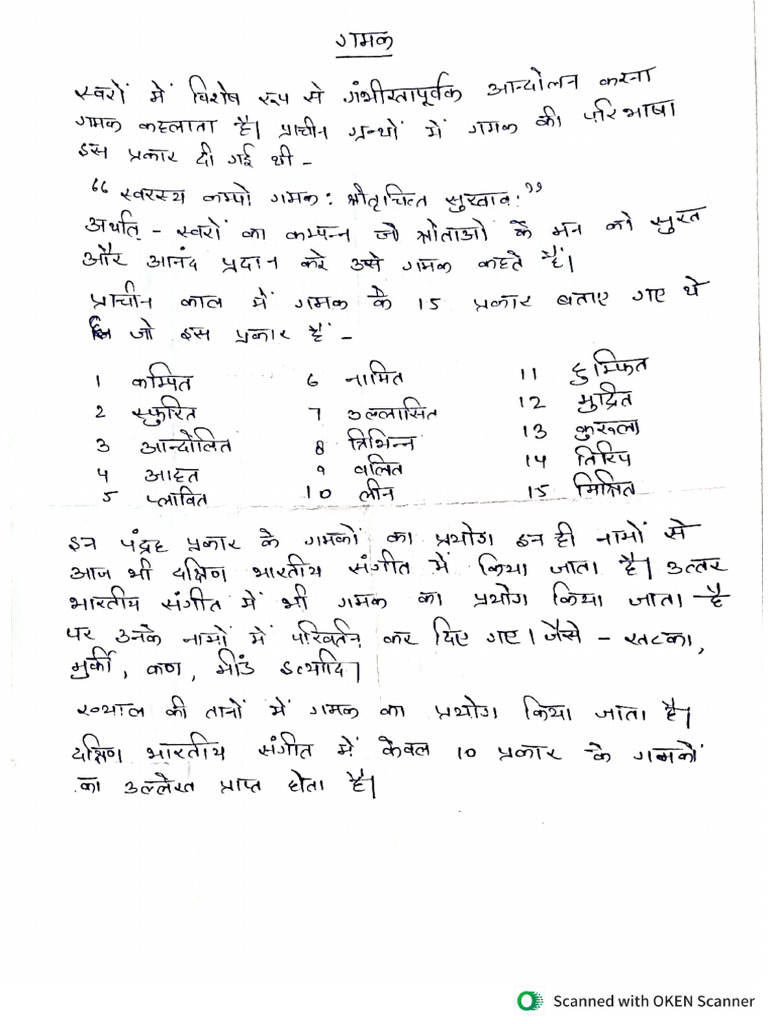 गमक
स्वरों में विशेष रूप से गंभीरतापूर्वक आन्दोलन करना
गमक कहलाता है। प्राचीन ग्रन्थों में गमक की परिभाषा
इस प्रकार दी गई थी -
“स्वरस्य कम्पो गमक: श्रौतृचित्त सुखाव:”
अर्थात् - स्वरों का कम्पन्न जो श्रोताओं के मन को सुख
और आनंद प्रदान करे उसे गमक कहते हैं।
प्राचीन काल में गमक के 15 प्रकार बताए गए थे
जो इस प्रकार हैं -
1 कम्पित 6 नामित 11 हुम्फित
2 स्फुरित 7 उल्लासित 12 मुद्रित
3 आन्दोलित 8 त्रिभिन्न 13 कुरूला
4 आहत 9 वलित 14 तिरिप
5 प्लावित 10 लीन 15 मिश्रित
इन पंद्रह प्रकार के गमकों का प्रयोग इन ही नामों से
आज भी दक्षिण भारतीय संगीत में किया जाता है। उत्तर
भारतीय संगीत में भी गमक का प्रयोग किया जाता है
पर उनके नामों में परिवर्तन कर दिए गए। जैसे - खटका,
मुर्की, कण, मींड इत्यादि।
ख्याल की तानों में गमक का प्रयोग किया जाता है।
दक्षिण भारतीय संगीत में केवल 10 प्रकार के गमकों
का उल्लेख प्राप्त होता है।
Scanned with OKEN Scanner